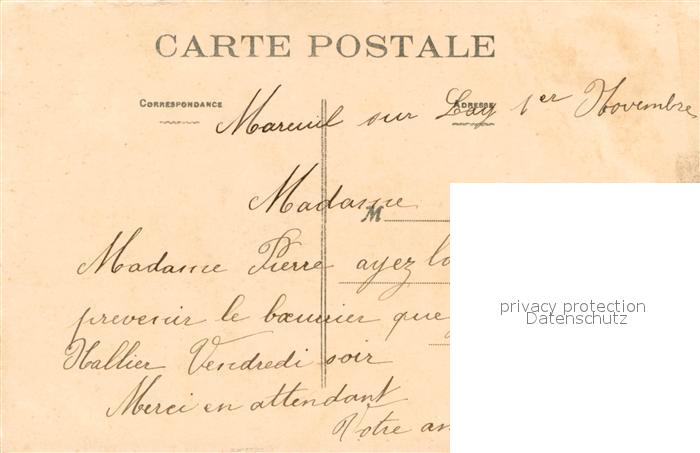 CARTE POSTALE
CORRESPONDANCE
ADRESSE
Mareuil sur Lay 1er Novembre
Madame
M
Madame Pierre ayez
prevenir le que
Hallier Vendredi soir
Merci en attendant
Votre
privacy protection
Datenschutz